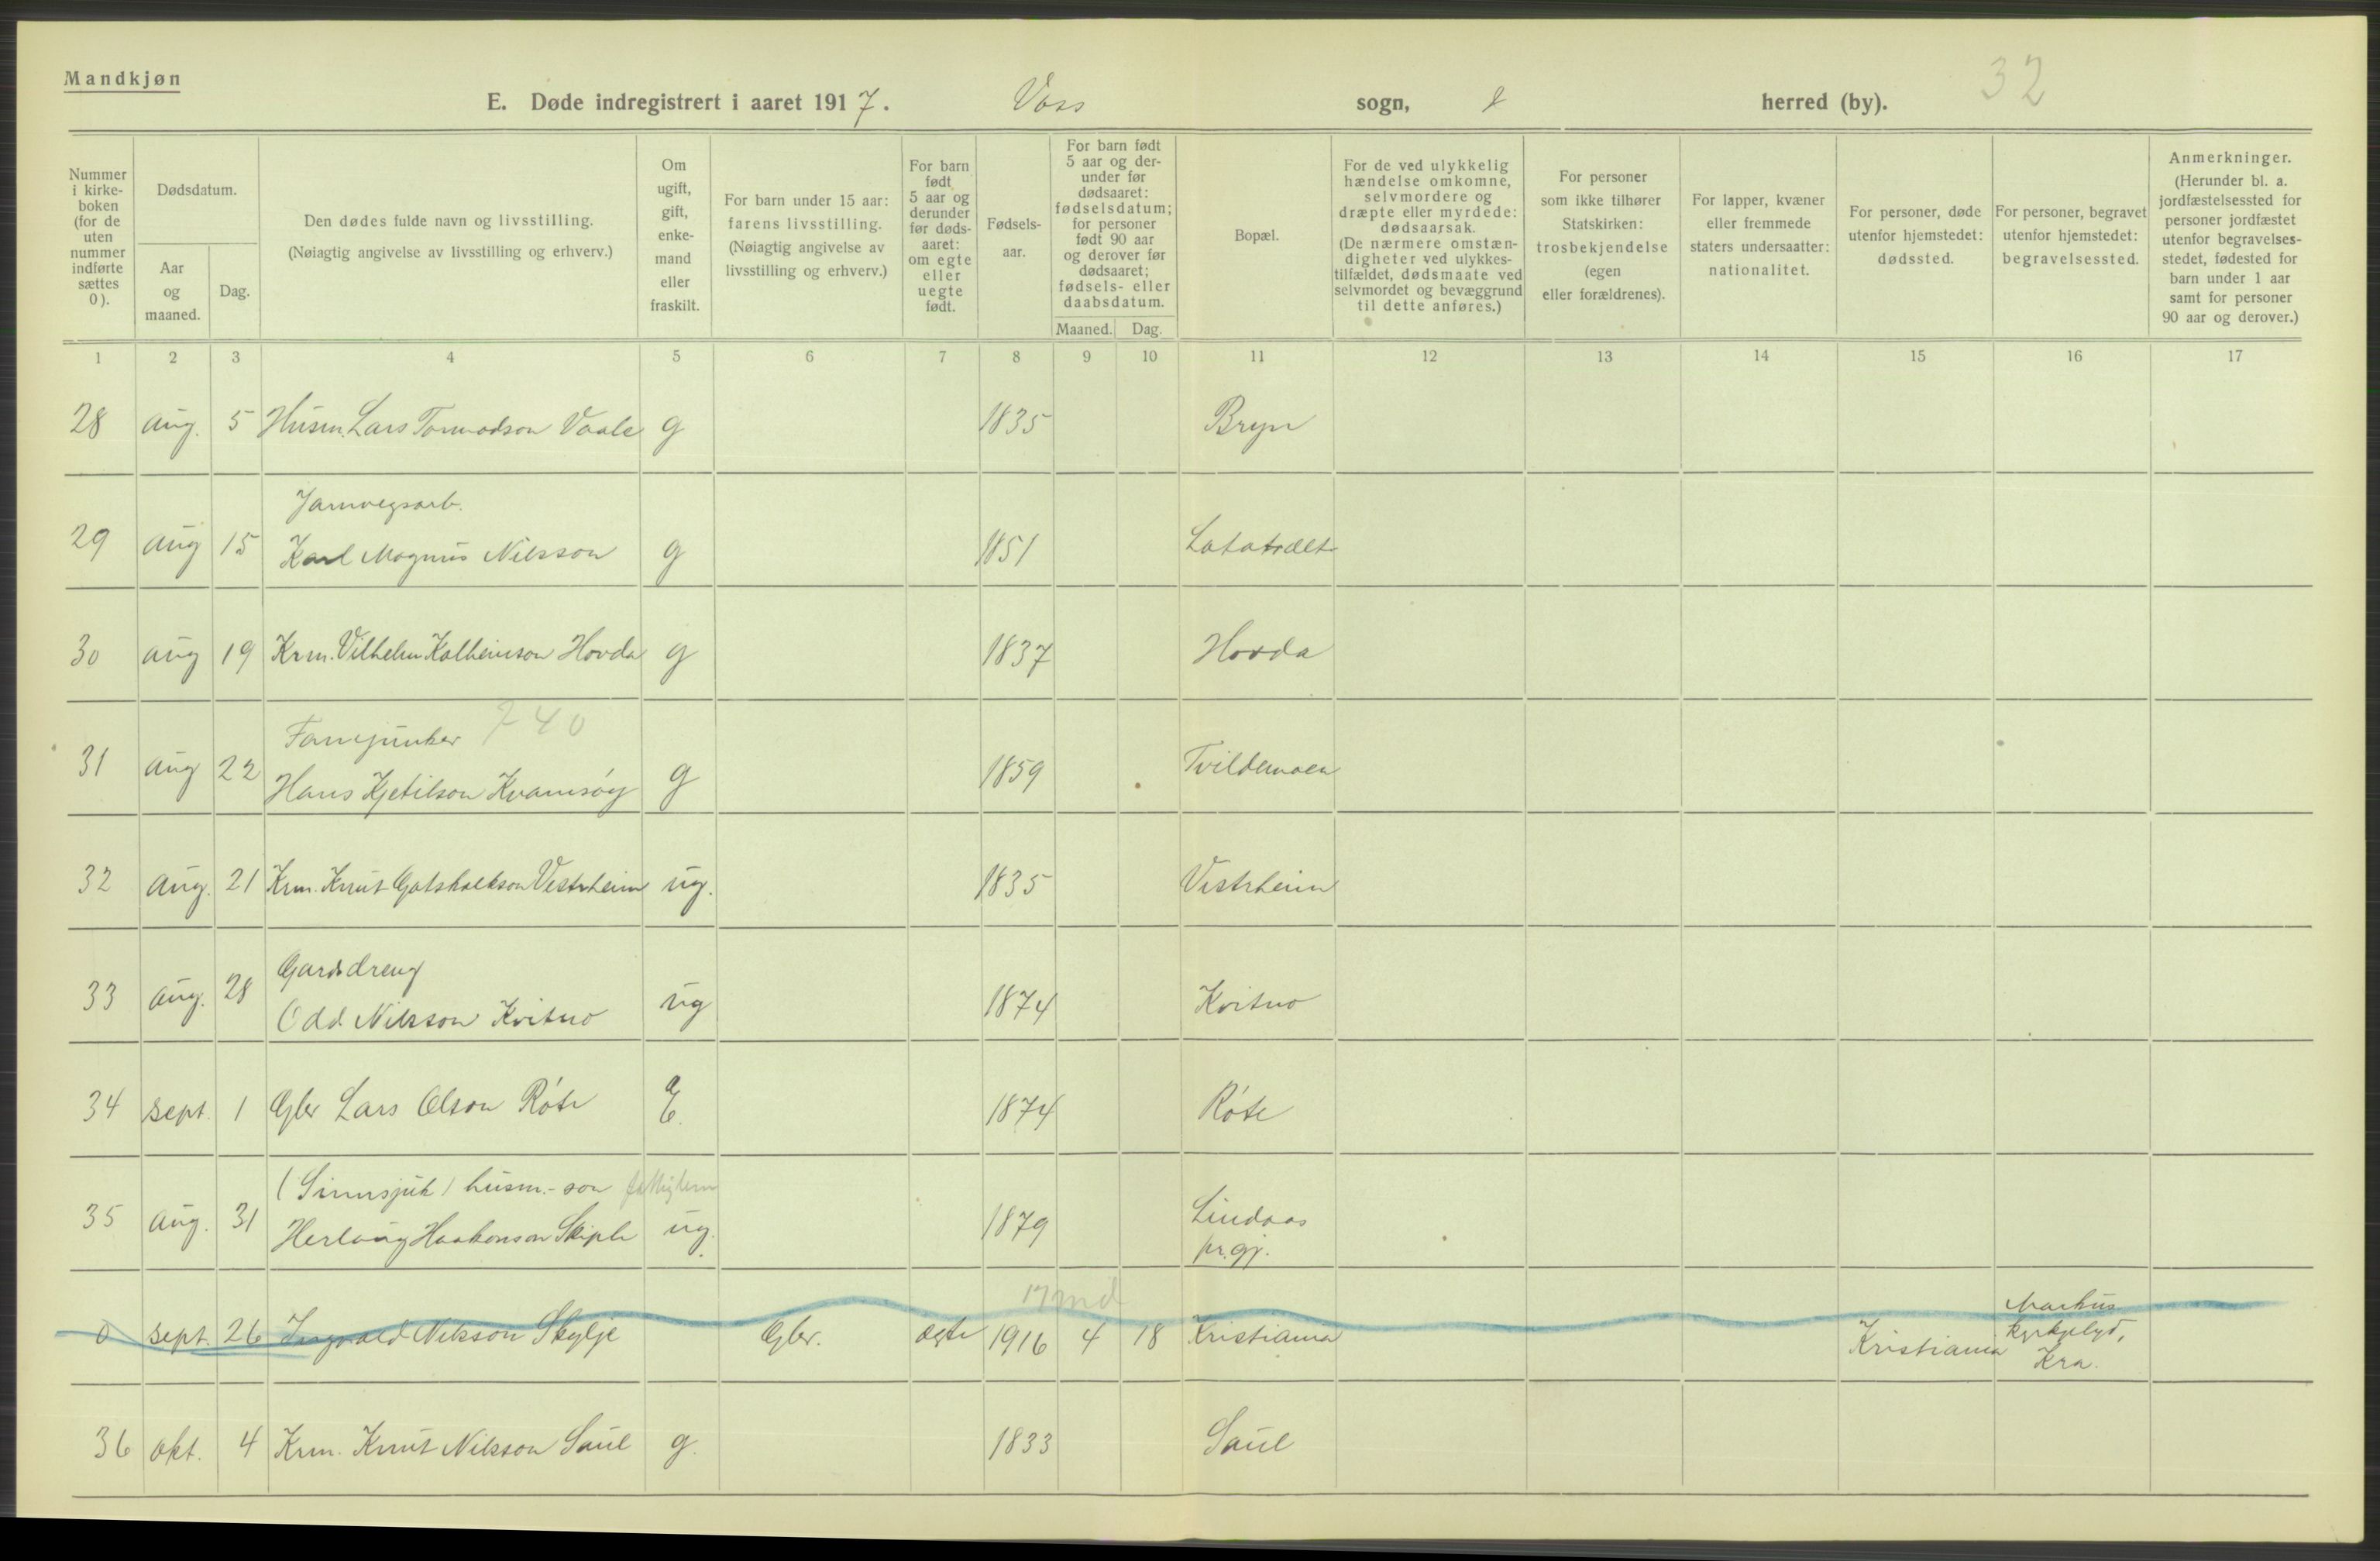 Mandkjøn
32
E. Døde indregistrert i aaret 1917. Voss sogn, herred (by).
Nummer i kirke-boken (for de uten nummer indførte sættes 0).
Dødsdatum.
Aar og maaned.
Dag.
Den dødes fulde navn og livsstilling.
(Nøiagtig angivelse av livsstilling og erhverv.)
Om ugift, gift, enke-mand eller fraskilt.
For barn under 15 aar: farens livsstilling.
(Nøiagtig angivelse av livsstilling og erhverv.)
For barn født 5 aar og derunder før døds-aaret: om egte eller uegte født.
Fødsels-aar.
For barn født 5 aar og der-under før dødsaaret: fødselsdatum; for personer født 90 aar og derover før dødsaaret; fødsels- eller daabsdatum.
Maaned. Dag.
Bopæl.
For de ved ulykkelig hændelse omkomne, selvmordere og dræpte eller myrdede: dødsaarsak.
(De nærmere omstæn-digheter ved ulykkes-tilfældet, dødsmaate ved selvmordet og bevæggrund til dette anføres.)
For personer som ikke tilhører Statskirken: trosbekjendelse (egen eller forældrenes).
For lapper, kvæner eller fremmede staters undersaatter: nationalitet.
For personer, døde utenfor hjemstedet: dødssted.
For personer, begravet utenfor hjemstedet: begravelsessted.
Anmerkninger.
(Herunder bl. a. jordfæstelsessted for personer jordfæstet utenfor begravelses-stedet, fødested for barn under 1 aar samt for personer 90 aar og derover.)
1 2 3 4 5 6 7 8 9 10 11 12 13 14 15 16 17
28 aug. 5 Husm. Lars Tormodson Vaale g 1835 Bryn
Jarnvegsarb.
29 aug 15 Karl Magnus Nilsson g 1851
30 aug 19 Krm. Vilhelm Kolbeinson Hovda g 1837 Hovda
Fanejunker 740
31 aug 22 Hans Kjetilson Kvamsøy g 1859 Tvildemoen
32 aug. 21 Krm. Knut Gotskalkson Vestrheim ug. 1835 Vestrheim
Gardsdreng
33 aug. 28 Odd Nilsson Kvitno ug 1874 Kvitno
34 sept. 1 Gbr Lars Olson Røte E. 1874 Røte
(Sinnsjuk) husm.-son
35 aug. 31 Herlaug Haakonson Skiple ug. 1879 Lindaas
pr.gj.
17 md
0 sept. 26 Ingvald Nilsson Skylje Gbr. ægte 1916 4 18 Kristiania Kristiania Markus
kyrkjelyd,
Kra.
36 okt. 4 Krm. Knut Nilsson Saue g. 1833 Saue